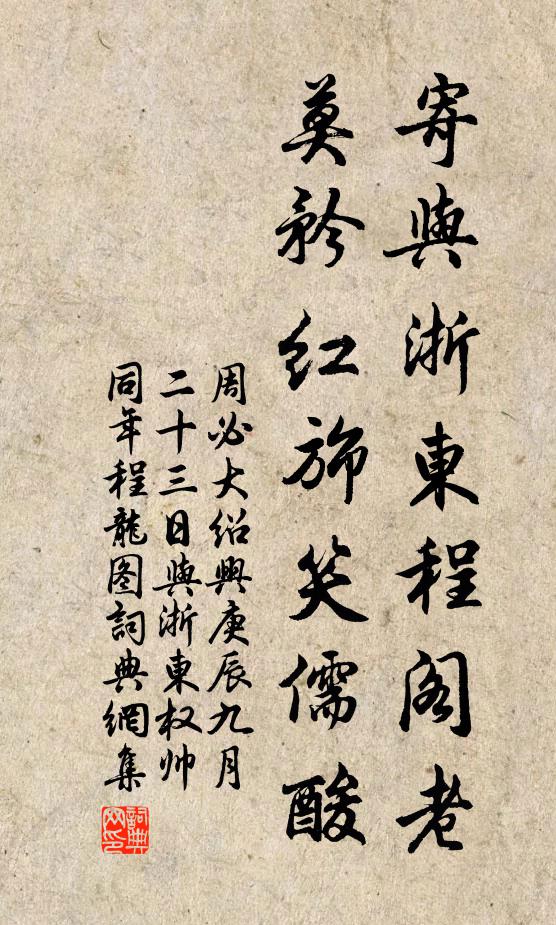 寄與浙東程阁老
莫矜红旆笑儒酸
周必大绍興庚辰九月
二十三日與浙東权帅
同年程龍图詞典網集
詞典
网印